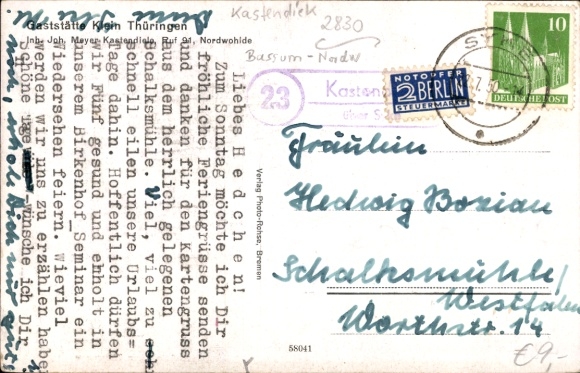 Gaststätte Klein Thüringen
Inh. Joh. Meyer Kastendiek, Ruf 91, Nordwohlde
Kastendiek
2830
Bassum-Nordw
23
Kasten
über
NOTOPFER
2 BERLIN
STEUERMARKE
10
DEUTSCHE POST
Liebes Hedchen!
Zum Sonntag möchte ich Dir
fröhliche Feriengrüsse senden
und danken für den Kartengruss
aus dem herrlich gelegenen
Schalksmühle. Viel, viel zu
schnell eilen unsere Urlaubs=
tage dahin. Hoffentlich dürfen
wir Fünf gesund und erholt in
unserem Birkenhof_Seminar ein
Wiedersehen feiern. Wieviel
werden wir uns zu erzählen haben
Schöne Tage wünsche ich Dir
Verlag Photo-Rohse, Bremen
Fräulein
Hedwig Bozian
Schalksmühle/
Westfalen
Worthstr. 14
58041
€9,-